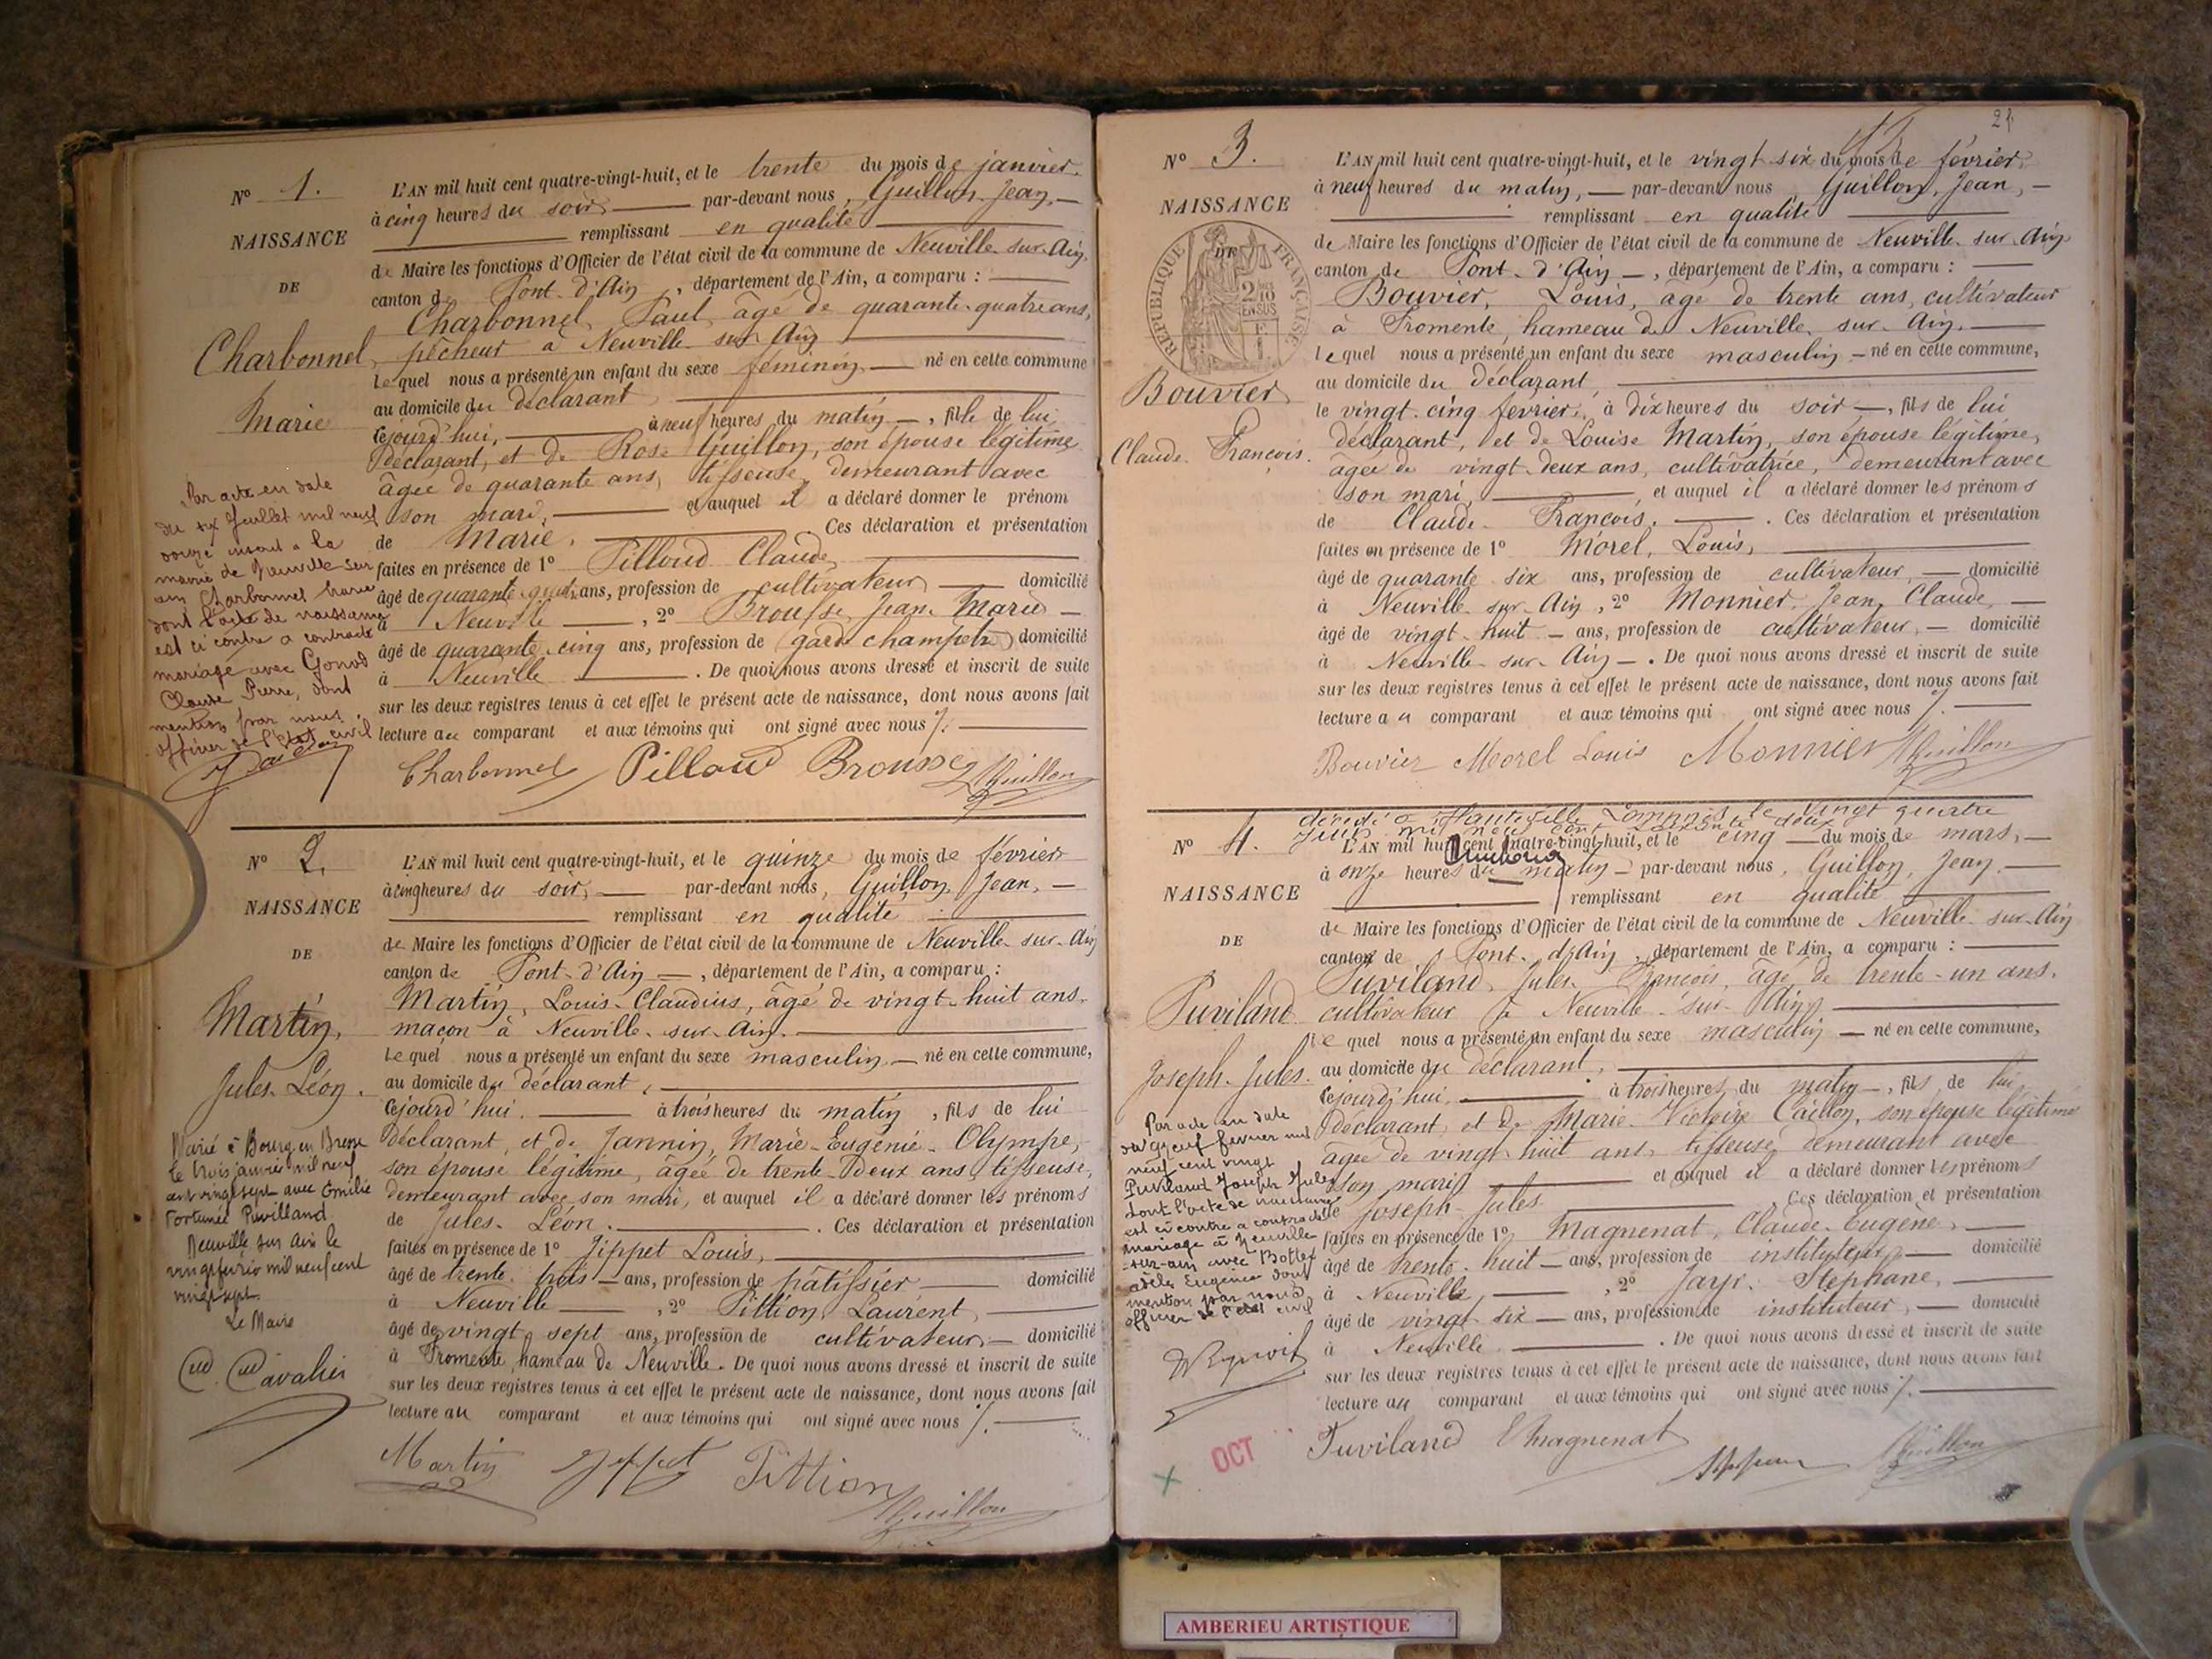 N° 1.
NAISSANCE
DE
Charbonnel,
Marie
L'AN mil huit cent quatre-vingt-huit, et le trente du mois de janvier,
à cinq heures du soir, par-devant nous, Guillon, Jean,
remplissant en qualité
de Maire les fonctions d'Officier de l'état civil de la commune de Neuville-sur-Ain,
canton de Pont-d'Ain, département de l'Ain, a comparu :
Charbonnel, Paul, âgé de quarante-quatre ans,
pêcheur à Neuville-sur-Ain
lequel nous a présenté un enfant du sexe féminin, né en cette commune
au domicile du déclarant,
cejourd'hui, à neuf heures du matin, fille de lui
déclarant, et de Rose Guillon, son épouse légitime
âgée de quarante ans, tisseuse, demeurant avec
son mari, et auquel il a déclaré donner le prénom
de Marie. Ces déclaration et présentation
faites en présence de 1° Pilloud Claude,
âgé de quarante-quatre ans, profession de cultivateur, domicilié
à Neuville, 2° Brousse, Jean-Marie
âgé de quarante-cinq ans, profession de garde champêtre, domicilié
à Neuville. De quoi nous avons dressé et inscrit de suite
sur les deux registres tenus à cet effet le présent acte de naissance, dont nous avons fait
lecture au comparant et aux témoins qui ont signé avec nous ./.
Charbonnel Pilloud Brousse Guillon
Par acte en date
du six Juillet mil neuf
onze inscrit à la
mairie de Neuville sur
ain Charbonnel Marie
dont l'acte de naissance
est ci contre a contracté
mariage avec Gonod
Claude Pierre, dont
mention par nous
officier de l'état civil
N° 2.
NAISSANCE
DE
Martin,
Jules-Léon.
L'AN mil huit cent quatre-vingt-huit, et le quinze du mois de février
à cinq heures du soir, par-devant nous, Guillon, Jean,
remplissant en qualité
de Maire les fonctions d'Officier de l'état civil de la commune de Neuville-sur-Ain
canton de Pont-d'Ain, département de l'Ain, a comparu :
Martin, Louis-Claudius, âgé de vingt-huit ans,
maçon à Neuville-sur-Ain.
lequel nous a présenté un enfant du sexe masculin, né en cette commune,
au domicile du déclarant,
cejourd'hui, à trois heures du matin, fils de lui
déclarant, et de Jannin, Marie-Eugénie-Olympe,
son épouse légitime, âgée de trente-deux ans, tisseuse,
demeurant avec son mari, et auquel il a déclaré donner les prénoms
de Jules-Léon. Ces déclaration et présentation
faites en présence de 1° Jippet Louis,
âgé de trente-trois ans, profession de pâtissier domicilié
à Neuville, 2° Pittion, Laurent,
âgé de vingt-sept ans, profession de cultivateur, domicilié
à Fromente, hameau de Neuville. De quoi nous avons dressé et inscrit de suite
sur les deux registres tenus à cet effet le présent acte de naissance, dont nous avons fait
lecture au comparant et aux témoins qui ont signé avec nous ./.
Martin Jippet Pittion
Guillon
Marié à Bourg en Bresse
le trois janvier mil neuf
cent vingt sept avec Emilie
Fortunée Puvilland
Neuville sur Ain le
vingt février mil neuf cent
vingt sept.
Le Maire
Cavalier
21
N° 3.
NAISSANCE
DE
RÉPUBLIQUE FRANÇAISE
2/10 EN SUS
Bouvier,
Claude-François.
L'AN mil huit cent quatre-vingt-huit, et le vingt-six du mois de février,
à neuf heures du matin, par-devant nous, Guillon, Jean,
remplissant en qualité
de Maire les fonctions d'Officier de l'état civil de la commune de Neuville-sur-Ain
canton de Pont-d'Ain, département de l'Ain, a comparu :
Bouvier, Louis, âgé de trente ans, cultivateur
à Fromente, hameau de Neuville-sur-Ain.
lequel nous a présenté un enfant du sexe masculin né en cette commune,
au domicile du déclarant,
le vingt-cinq février, à dix heures du soir, fils de lui
déclarant, et de Louise Martin, son épouse légitime,
âgée de vingt-deux ans, cultivatrice, demeurant avec
son mari, et auquel il a déclaré donner les prénoms
de Claude-François. Ces déclaration et présentation
faites en présence de 1° Morel, Louis,
âgé de quarante-six ans, profession de cultivateur, domicilié
à Neuville-sur-Ain, 2° Monnier, Jean, Claude,
âgé de vingt-huit ans, profession de cultivateur, domicilié
à Neuville-sur-Ain. De quoi nous avons dressé et inscrit de suite
sur les deux registres tenus à cet effet le présent acte de naissance, dont nous avons fait
lecture au comparant et aux témoins qui ont signé avec nous ./.
Bouvier Morel Louis Monnier Guillon
décédé à Hauteville Lompnes le vingt quatre
Juin mil neuf cent soixante deux
N° 4.
NAISSANCE
DE
Puviland
Joseph-Jules.
L'AN mil huit cent quatre-vingt-huit, et le cinq du mois de mars,
à onze heures du matin par-devant nous, Guillon, Jean,
remplissant en qualité
de Maire les fonctions d'Officier de l'état civil de la commune de Neuville-sur-Ain
canton de Pont-d'Ain, département de l'Ain, a comparu :
Puviland, Jules-François, âgé de trente-un ans,
cultivateur à Neuville-sur-Ain,
lequel nous a présenté un enfant du sexe masculin né en cette commune,
au domicile du déclarant,
cejourd'hui, à trois heures du matin, fils de lui
déclarant, et de Marie-Victoire Caillon, son épouse légitime
âgée de vingt-huit ans, tisseuse, demeurant avec
son mari et auquel il a déclaré donner les prénoms
de Joseph-Jules. Ces déclaration et présentation
faites en présence de 1° Magnenat, Claude-Eugène,
âgé de trente-huit ans, profession de instituteur, domicilié
à Neuville, 2° Jayr, Stéphane,
âgé de vingt-six ans, profession de instituteur, domicilié
à Neuville. De quoi nous avons dressé et inscrit de suite
sur les deux registres tenus à cet effet le présent acte de naissance, dont nous avons fait
lecture au comparant et aux témoins qui ont signé avec nous ./.
Puviland Magnenat
Guillon
Par acte en date
du neuf février mil
neuf cent vingt
Puviland Joseph Jules
dont l'acte de naissance
est ci contre a contracté
mariage à Neuville
-sur-ain avec
adèle Eugénie dont
mention par nous
officier de l'état civil
OCT
AMBERIEU ARTISTIQUE